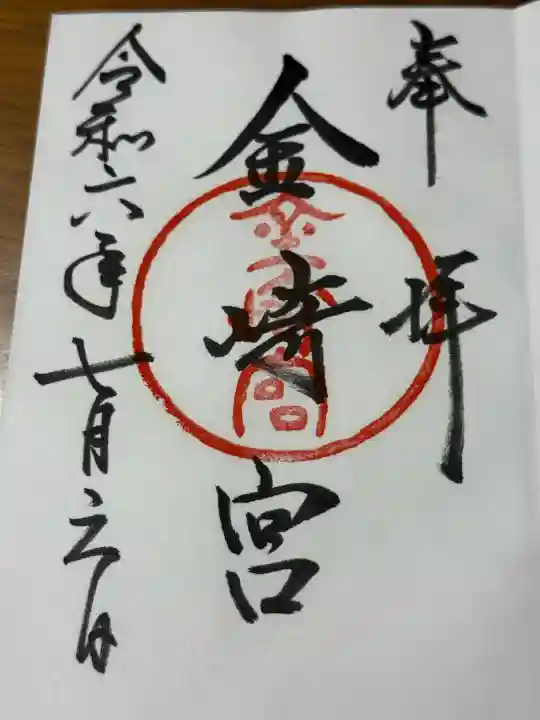 奉拝
金崎宮
令和六年七月六日